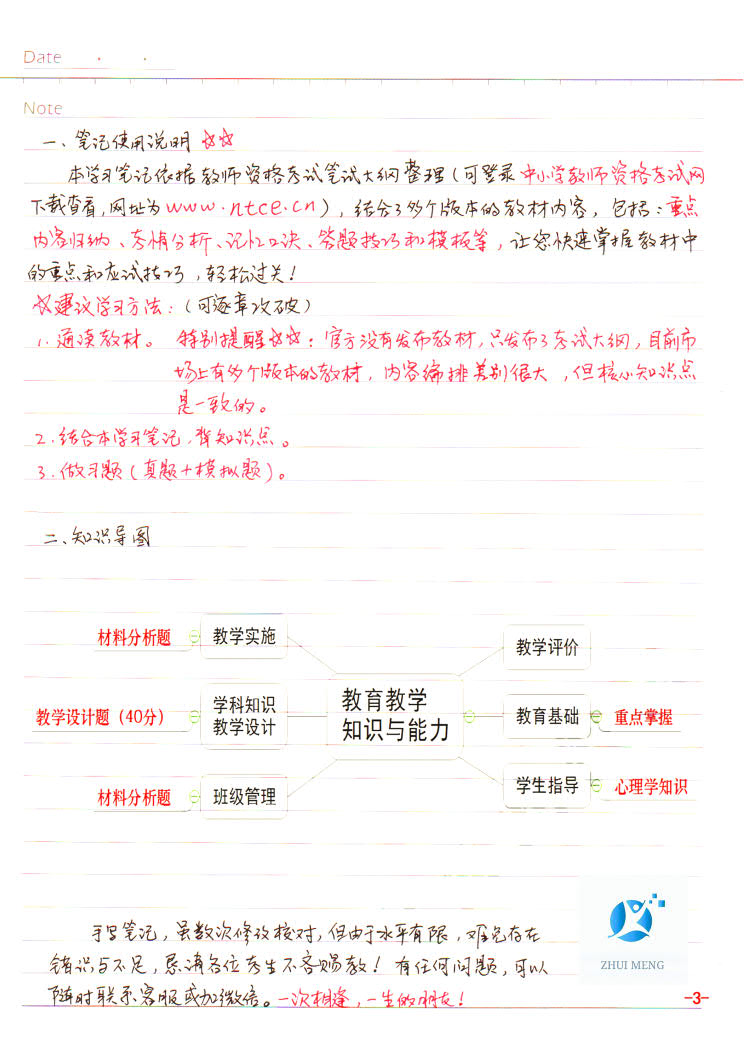 Date
Note
一、笔记使用说明 ☆☆
本学习笔记依据教师资格考试笔试大纲整理(可登录中小学教师资格考试网
下载查看,网址为www.ntce.cn),结合了多个版本的教材内容,包括:重点
内容归纳、考情分析、记忆口诀、答题技巧和模板等,让您快速掌握教材中
的重点和应试技巧,轻松过关!
☆建议学习方法:(可逐章攻破)
1.通读教材。 特别提醒☆☆:官方没有发布教材,只发布了考试大纲,目前市
场上有多个版本的教材,内容编排差别很大,但核心知识点
是一致的。
2.结合本学习笔记,背知识点。
3.做习题(真题+模拟题)。
二、知识导图
材料分析题 教学实施 教学评价
教学设计题(40分) 学科知识 教学设计 教育教学 知识与能力 教育基础 重点掌握
材料分析题 班级管理 学生指导 心理学知识
手写笔记,虽数次修改核对,但由于水平有限,难免存在
错误与不足,恳请各位考生不吝赐教!有任何问题,可以
随时联系客服或加微信。一次相逢,一生的朋友!
ZHUI MENG
-3-